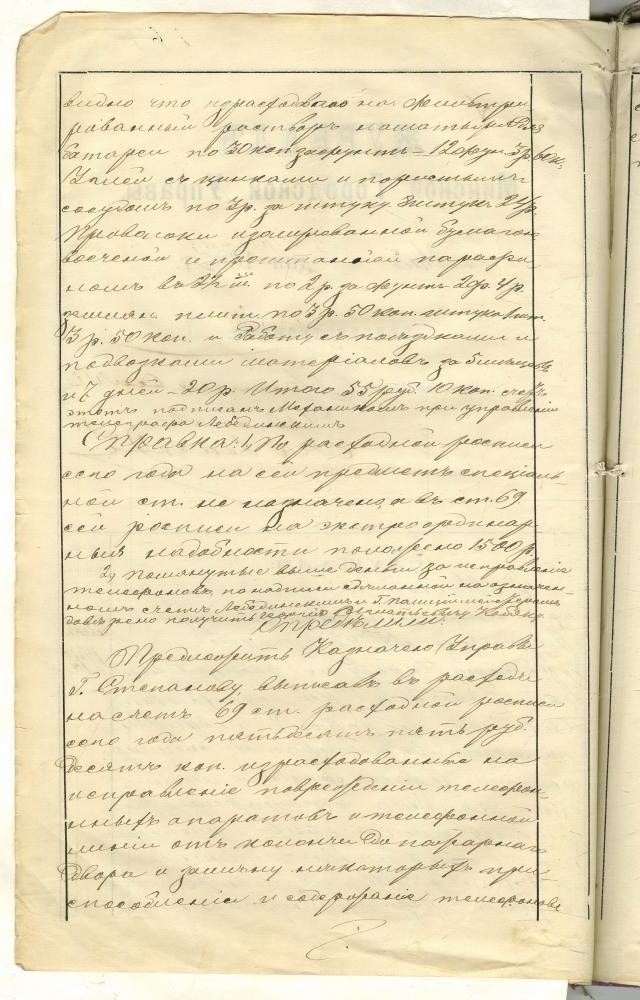 видно что израсходовано на фильтри-
рованный растворъ нашатыря для
батареи по 30 коп. за фунтъ – 12 фун. 3 р. 60 к.
Углей съ цинками и пористымъ
сосудомъ по 3 р. за штуку 8 штукъ 24 р.
Проволоки изолированной бумагою
вощеной и пропитанной парафи-
номъ въ по 2 р. за фунтъ 2 ф. 4 р.
по 3 р. 50 коп. штука 1 шт.
3 р. 50 коп. и Работу съ поездками и
подвозками матеріаловъ за 5 месяцевъ
и 7 дней – 20 р. Итого 55 руб. 10 коп. счетъ
этотъ подписанъ Механикомъ при управленіи
телеграфа Лебединскимъ
Справка: 1, По расходной росписи
сего года на сей предметъ спеціаль-
ной ст. не назначено, а въ ст. 69
сей росписи на экстраординар-
ныя надобности положено 1500 р.
2, помянутые выше деньги за исправленіе
телефоновъ, по надписи сделанной на означен-
номъ счете Лебединскимъ и Г. Полицiймейстеромъ
должно получить Георгію Игнатьевичу
Определили:
Предложить Казначею Управы
Г. Степанову, выписавъ въ расходъ
на счетъ 69 ст. расходной росписи
сего года пятьдесятъ пять руб.
десять коп. израсходованные на
исправленіе поврежденій телефон-
ныхъ апаратовъ и телефонной
линіи отъ каланчи до пожарнаго
двора и замену некоторыхъ при-
способленій и содержаніе телефоновъ